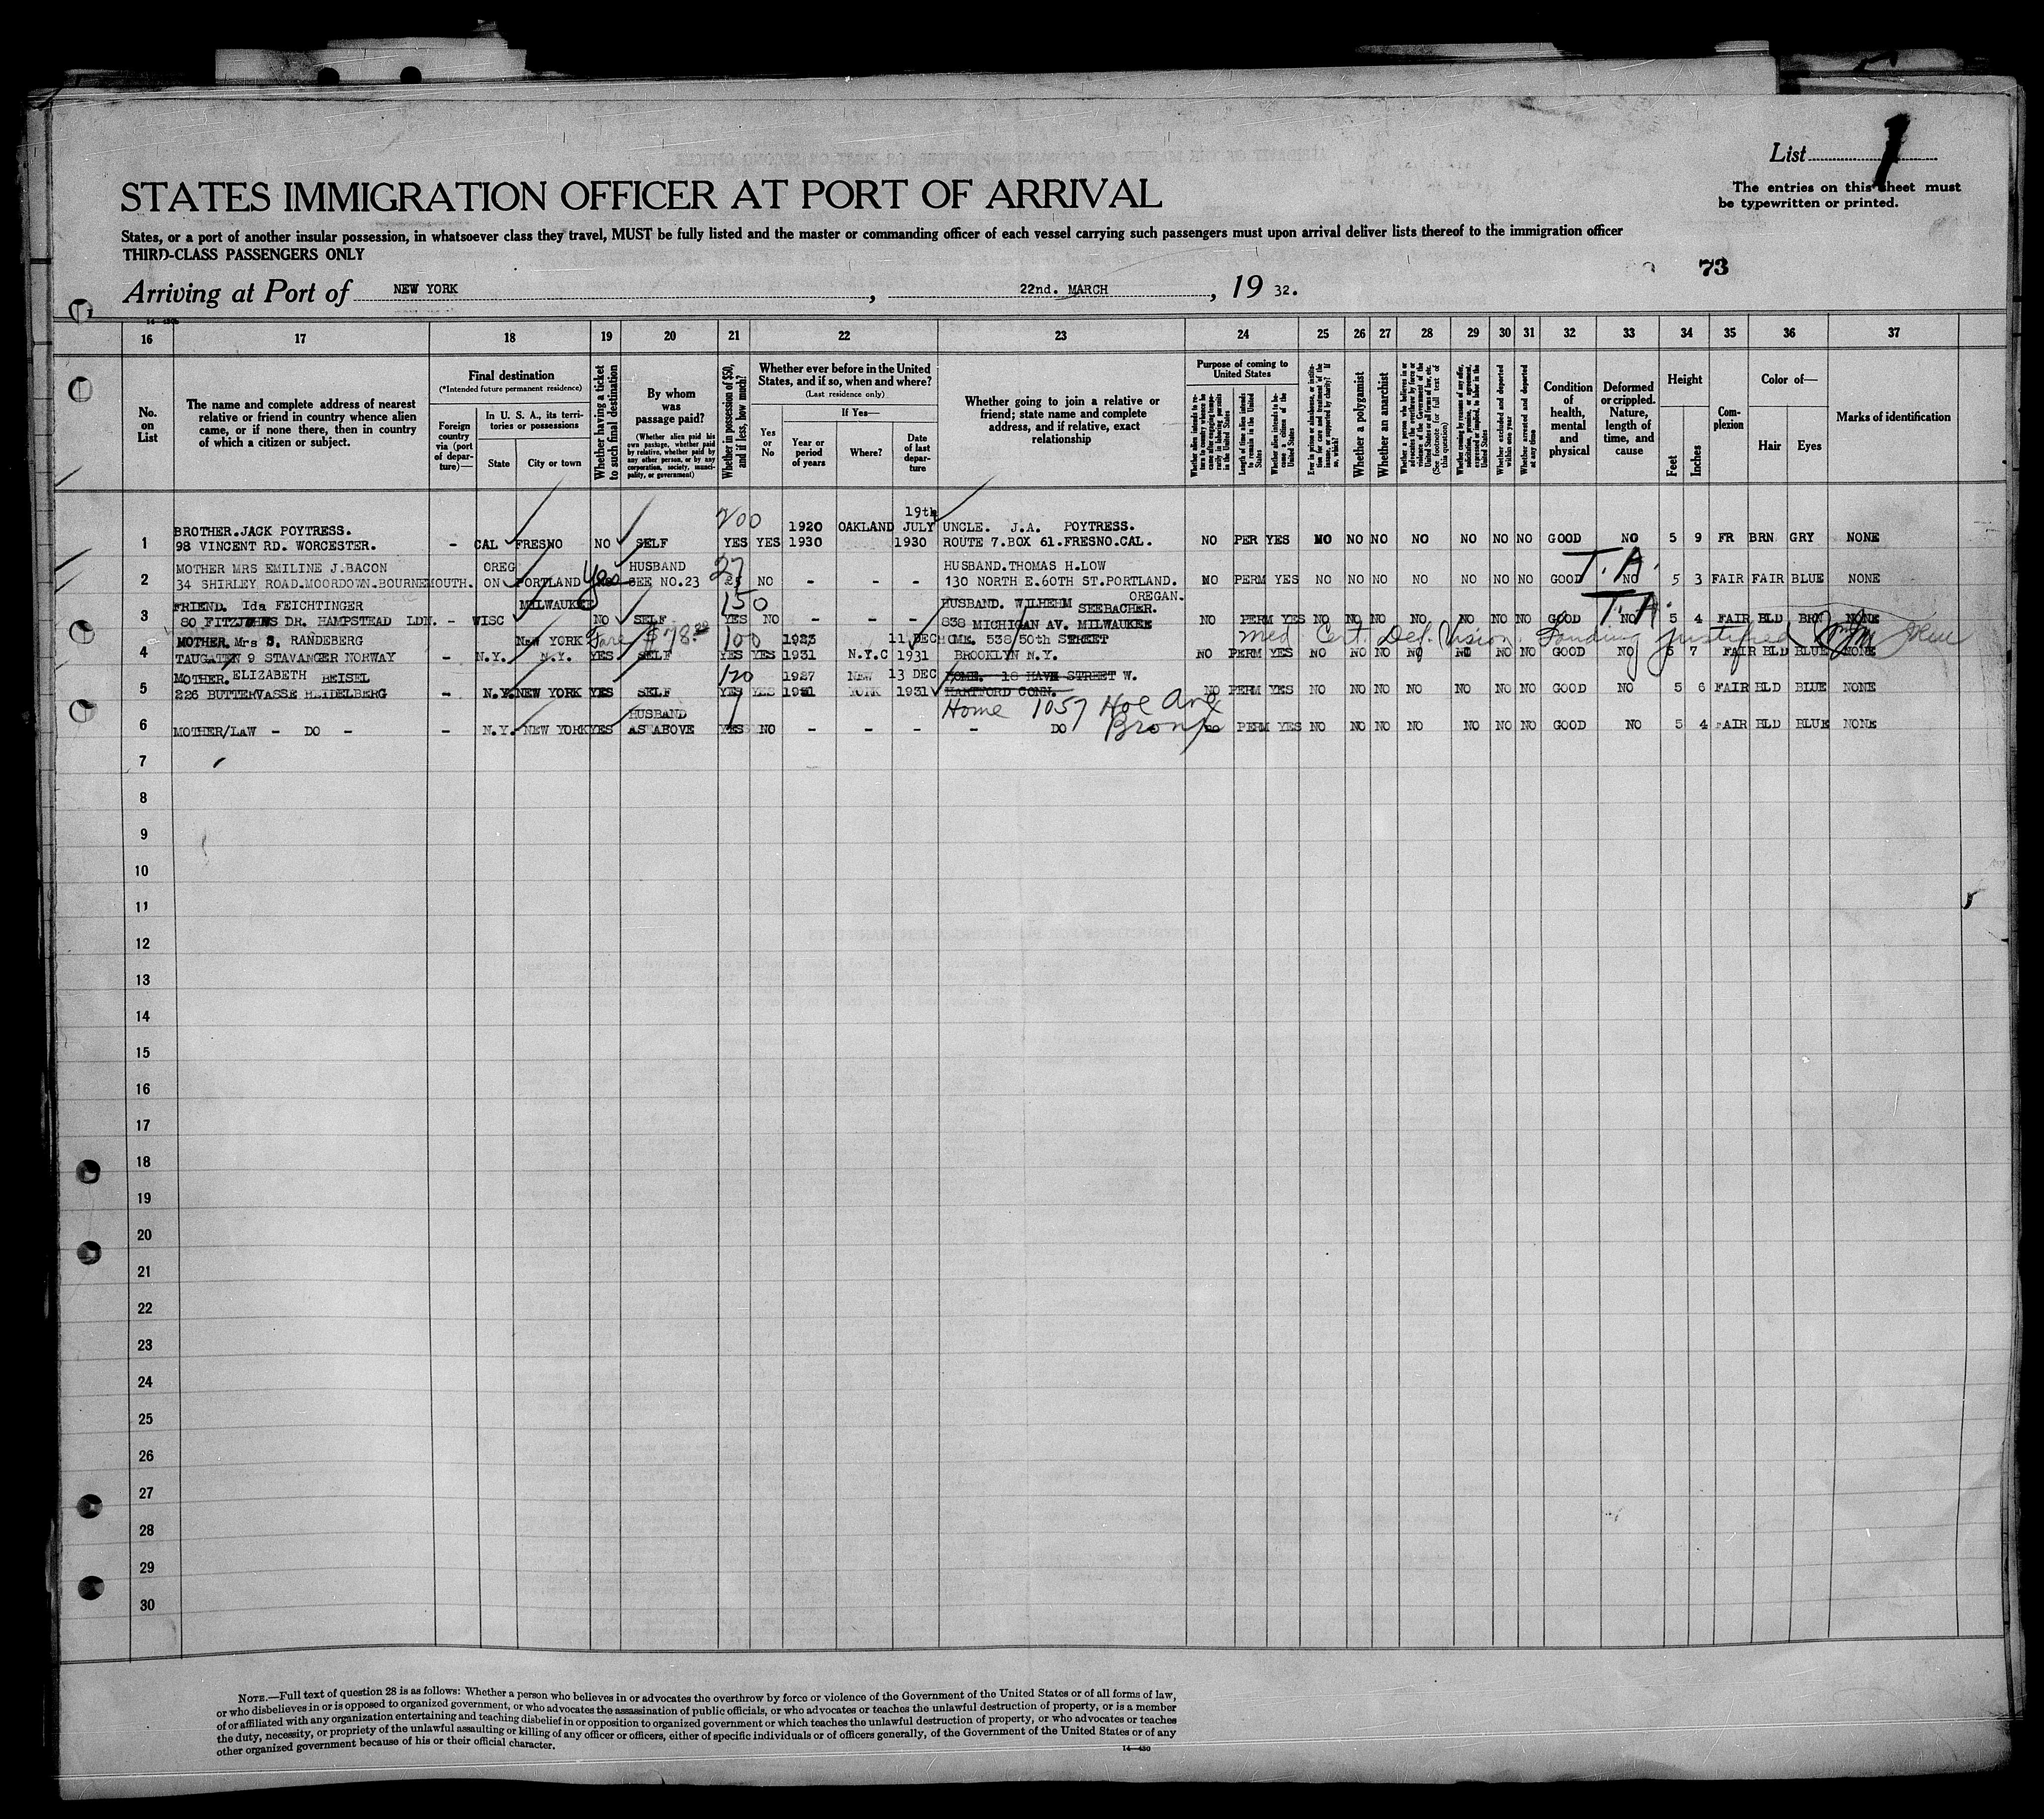 List 1
The entries on this sheet must
be typewritten or printed.
STATES IMMIGRATION OFFICER AT PORT OF ARRIVAL
States, or a port of another insular possession, in whatsoever class they travel, MUST be fully listed and the master or commanding officer of each vessel carrying such passengers must upon arrival deliver lists thereof to the immigration officer
THIRD-CLASS PASSENGERS ONLY
73
Arriving at Port of NEW YORK, 22nd. MARCH, 19 32.
16 17 18 19 20 21 22 23 24 25 26 27 28 29 30 31 32 33 34 35 36 37
No. on List
The name and complete address of nearest relative or friend in country whence alien came, or if none there, then in country of which a citizen or subject.
Final destination
(*Intended future permanent residence)
Foreign country via (port of departure)—
In U. S. A., its territories or possessions
State
City or town
Whether having a ticket to such final destination
By whom was passage paid?
(Whether alien paid his own passage, whether paid by relative, whether paid by any other person, or by any corporation, society, municipality, or government)
Whether in possession of $50, and if less, how much?
Whether ever before in the United States, and if so, when and where?
(Last residence only)
Yes or No
If Yes—
Year or period of years
Where?
Date of last departure
Whether going to join a relative or friend; state name and complete address, and if relative, exact relationship
Purpose of coming to United States
Length of time alien intends to remain in the United States
Whether alien intends to become a citizen of the United States
Whether a polygamist
Whether an anarchist
(See footnote for full text of this question)
Whether excluded and deported within one year
Whether arrested and deported at any time
Condition of health, mental and physical
Deformed or crippled. Nature, length of time, and cause
Height
Feet
Inches
Complexion
Color of—
Hair
Eyes
Marks of identification
200 19th
BROTHER.JACK POYTRESS. 1920 OAKLAND JULY UNCLE. J.A. POYTRESS.
1 98 VINCENT RD. WORCESTER. - CAL FRESNO NO SELF YES YES 1930 1930 ROUTE 7.BOX 61.FRESNO.CAL. NO PER YES NO NO NO NO NO NO NO GOOD NO 5 9 FR BRN GRY NONE
MOTHER MRS EMILINE J.BACON OREG HUSBAND 27 HUSBAND.THOMAS H.LOW T.A.
2 34 SHIRLEY ROAD.MOORDOWN.BOURNEMOUTH. ON PORTLAND Yes SEE NO.23 NO - - - 130 NORTH E.60TH ST.PORTLAND. OREGAN. NO PERM YES NO NO NO NO NO NO NO GOOD NO 5 3 FAIR FAIR BLUE NONE
FRIEND. Ida FEICHTINGER MILWAUKEE 150 HUSBAND. WILHEHM SEEBACHER. T.A.
3 80 FITZJOHNS DR. HAMPSTEAD LDN. - WISC NO SELF YES NO - - - 838 MICHIGAN AV. MILWAUKEE NO PERM YES NO NO NO NO NO NO NO GOOD NO 5 4 FAIR BLD BRN NONE
MOTHER. Mrs S. RANDEBERG NEW YORK Fare $78.00 100 1923 11 DEC HOME. 538 50th STREET Med. Cert. Def. Vision. Landing justified
4 TAUGATEN 9 STAVANGER NORWAY - N.Y. N.Y. YES SELF YES YES 1931 N.Y.C 1931 BROOKLYN N.Y. NO PERM YES NO NO NO NO NO NO NO GOOD NO 5 7 FAIR BLD BLUE NONE
MOTHER. ELIZABETH BEISEL 120 1927 NEW 13 DEC HOME. 18 HAVE STREET W.
5 226 BUTTERVASSE HEIDELBERG - N.Y. NEW YORK YES SELF YES YES 1931 YORK 1931 HARTFORD CONN. NO PERM YES NO NO NO NO NO NO NO GOOD NO 5 6 FAIR BLD BLUE NONE
HUSBAND Home 1057 Hoe Ave
6 MOTHER/LAW - DO - - N.Y. NEW YORK YES AS ABOVE YES NO - - - - DO Bronx NO PERM YES NO NO NO NO NO NO NO GOOD NO 5 4 FAIR BLD BLUE NONE
7
8
9
10
11
12
13
14
15
16
17
18
19
20
21
22
23
24
25
26
27
28
29
30
NOTE.—Full text of question 28 is as follows: Whether a person who believes in or advocates the overthrow by force or violence of the Government of the United States or of all forms of law,
or who disbelieves in or is opposed to organized government, or who advocates the assassination of public officials, or who advocates or teaches the unlawful destruction of property, or is a member
of or affiliated with any organization entertaining and teaching disbelief in or opposition to organized government or which teaches the unlawful destruction of property, or who advocates or teaches
the duty, necessity, or propriety of the unlawful assaulting or killing of any officer or officers, either of specific individuals or of officers generally, of the Government of the United States or of any
other organized government because of his or their official character.
14—430